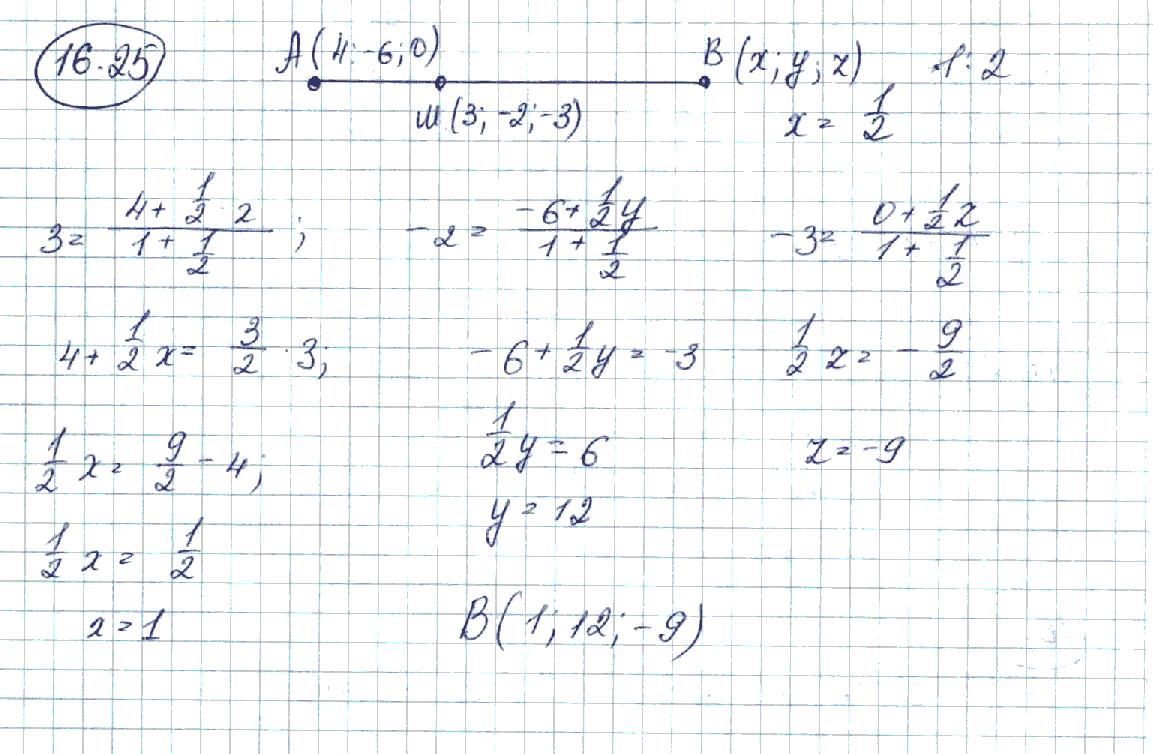 16.25 A(4;-6;0) B(x;y;z) 1:2
M(3;-2;-3) x = 1/2
3 = (4 + 1/2 · 2)/(1 + 1/2); -2 = (-6 + 1/2 y)/(1 + 1/2) -3 = (0 + 1/2 z)/(1 + 1/2)
4 + 1/2 x = 3/2 · 3; -6 + 1/2 y = -3 1/2 z = -9/2
1/2 x = 9/2 - 4; 1/2 y = 6 z = -9
y = 12
1/2 x = 1/2
x = 1 B(1;12;-9)